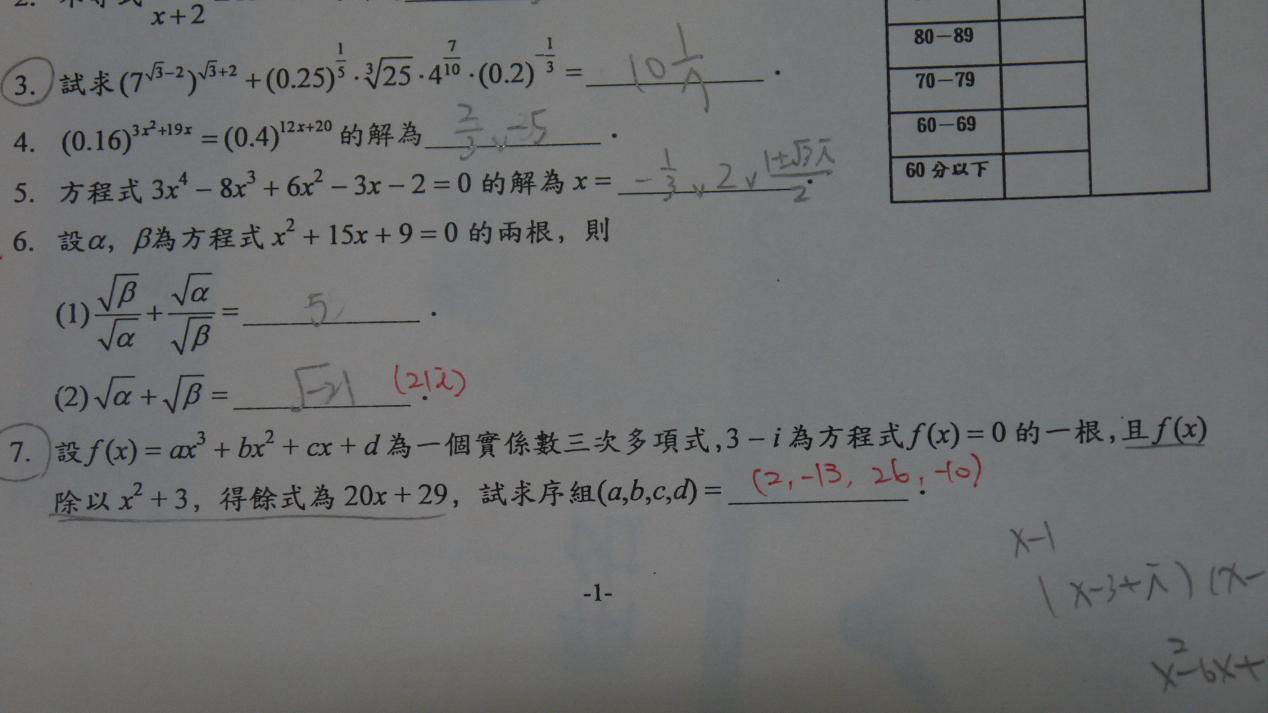 x+2
80－89
3. 試求(7^{√3−2})^{√3+2} + (0.25)^{1/5} · ∛25 · 4^{7/10} · (0.2)^{−1/3} = 10 1/7 .
70－79
4. (0.16)^{3x²+19x} = (0.4)^{12x+20} 的解為 2/3 ∨ −5 .
60－69
5. 方程式 3x⁴ − 8x³ + 6x² − 3x − 2 = 0 的解為 x = −1/3 ∨ 2 ∨ (1±√3 i)/2 .
60 分以下
6. 設α, β為方程式 x² + 15x + 9 = 0 的兩根, 則
(1) √β/√α + √α/√β = 5 .
(2) √α + √β = √−21 (21i) .
7. 設 f(x) = ax³ + bx² + cx + d 為一個實係數三次多項式, 3 − i 為方程式 f(x) = 0 的一根, 且 f(x)
除以 x² + 3, 得餘式為 20x + 29, 試求序組(a,b,c,d) = (2, −13, 26, −10) .
x−1
(x−3+i)(x−
x²−6x+
-1-